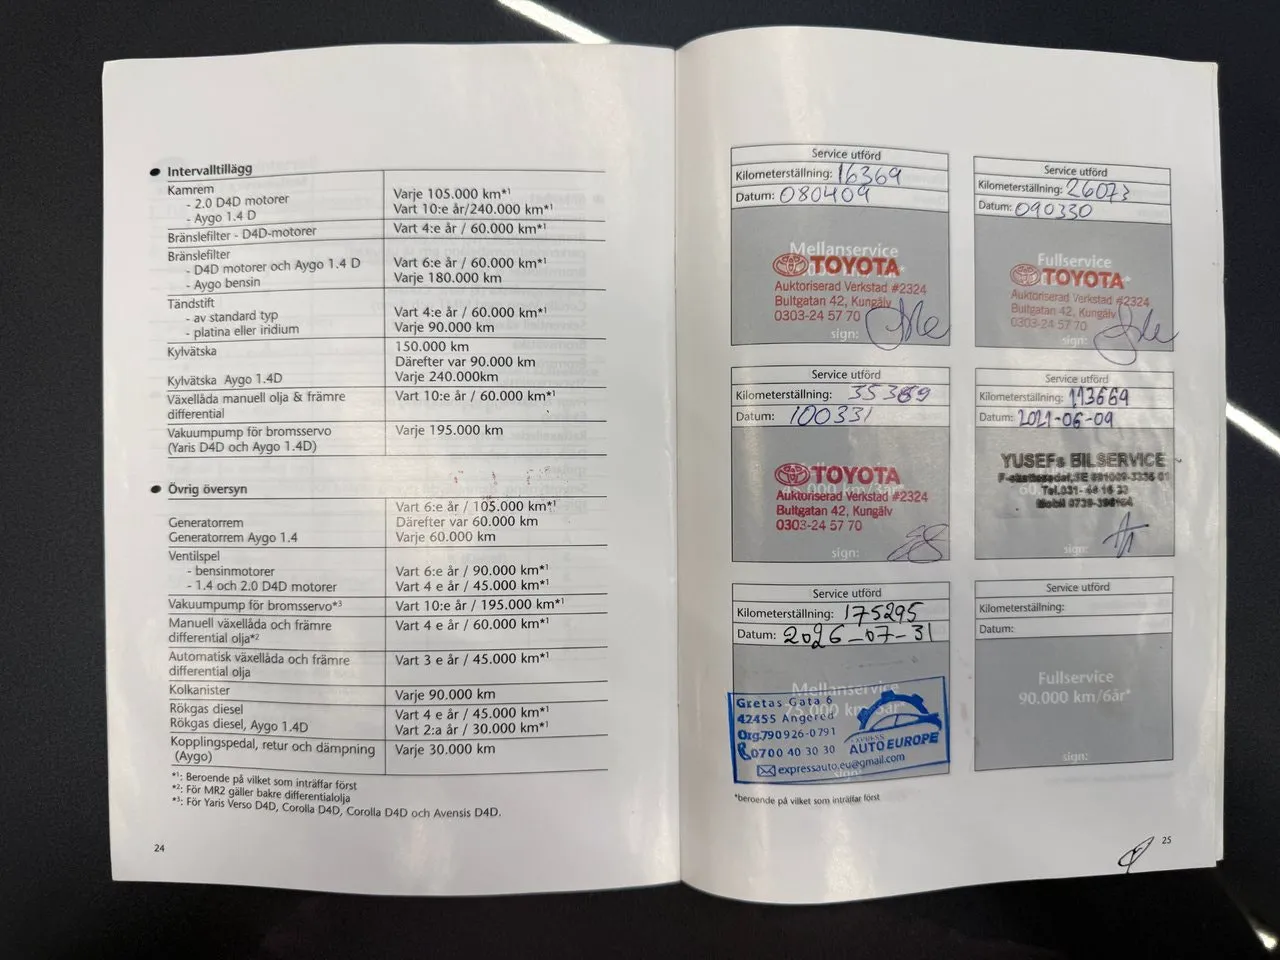 Intervalltillägg
Kamrem
- 2.0 D4D motorer Varje 105.000 km*¹
- Aygo 1.4 D Vart 10:e år/240.000 km*¹
Bränslefilter - D4D-motorer Vart 4:e år / 60.000 km*¹
Bränslefilter
- D4D motorer och Aygo 1.4 D Vart 6:e år / 60.000 km*¹
- Aygo bensin Varje 180.000 km
Tändstift
- av standard typ Vart 4:e år / 60.000 km*¹
- platina eller iridium Varje 90.000 km
Kylvätska 150.000 km
Därefter var 90.000 km
Kylvätska Aygo 1.4D Varje 240.000km
Växellåda manuell olja & främre Vart 10:e år / 60.000 km*¹
differential
Vakuumpump för bromsservo Varje 195.000 km
(Yaris D4D och Aygo 1.4D)
Övrig översyn
Vart 6:e år / 105.000 km*¹
Generatorrem Därefter var 60.000 km
Generatorrem Aygo 1.4 Varje 60.000 km
Ventilspel
- bensinmotorer Vart 6:e år / 90.000 km*¹
- 1.4 och 2.0 D4D motorer Vart 4 e år / 45.000 km*¹
Vakuumpump för bromsservo*³ Vart 10:e år / 195.000 km*¹
Manuell växellåda och främre Vart 4 e år / 60.000 km*¹
differential olja*²
Automatisk växellåda och främre Vart 3 e år / 45.000 km*¹
differential olja
Kolkanister Varje 90.000 km
Rökgas diesel Vart 4 e år / 45.000 km*¹
Rökgas diesel, Aygo 1.4D Vart 2:a år / 30.000 km*¹
Kopplingspedal, retur och dämpning Varje 30.000 km
(Aygo)
*¹: Beroende på vilket som inträffar först
*²: För MR2 gäller bakre differentialolja
*³: För Yaris Verso D4D, Corolla D4D, Corolla D4D och Avensis D4D.
24
Service utförd
Kilometerställning: 16369
Datum: 080409
Mellanservice
TOYOTA
Auktoriserad Verkstad #2324
Bultgatan 42, Kungälv
0303-24 57 70
sign:
Service utförd
Kilometerställning: 26073
Datum: 090330
Fullservice
TOYOTA
Auktoriserad Verkstad #2324
Bultgatan 42, Kungälv
0303-24 57 70
sign:
Service utförd
Kilometerställning: 35369
Datum: 100331
TOYOTA
Auktoriserad Verkstad #2324
Bultgatan 42, Kungälv
0303-24 57 70
sign:
Service utförd
Kilometerställning: 113669
Datum: 2021-06-09
YUSEFs BILSERVICE
sign:
Service utförd
Kilometerställning: 175295
Datum: 2026-07-31
Mellanservice
75.000 km/5år*
Gretas Gata 6
42455 Angered
Org.790926-0791
0700 40 30 30
EXPRESS
AUTO EUROPE
expressauto.eu@gmail.com
sign:
Service utförd
Kilometerställning:
Datum:
Fullservice
90.000 km/6år*
sign:
*beroende på vilket som inträffar först
25